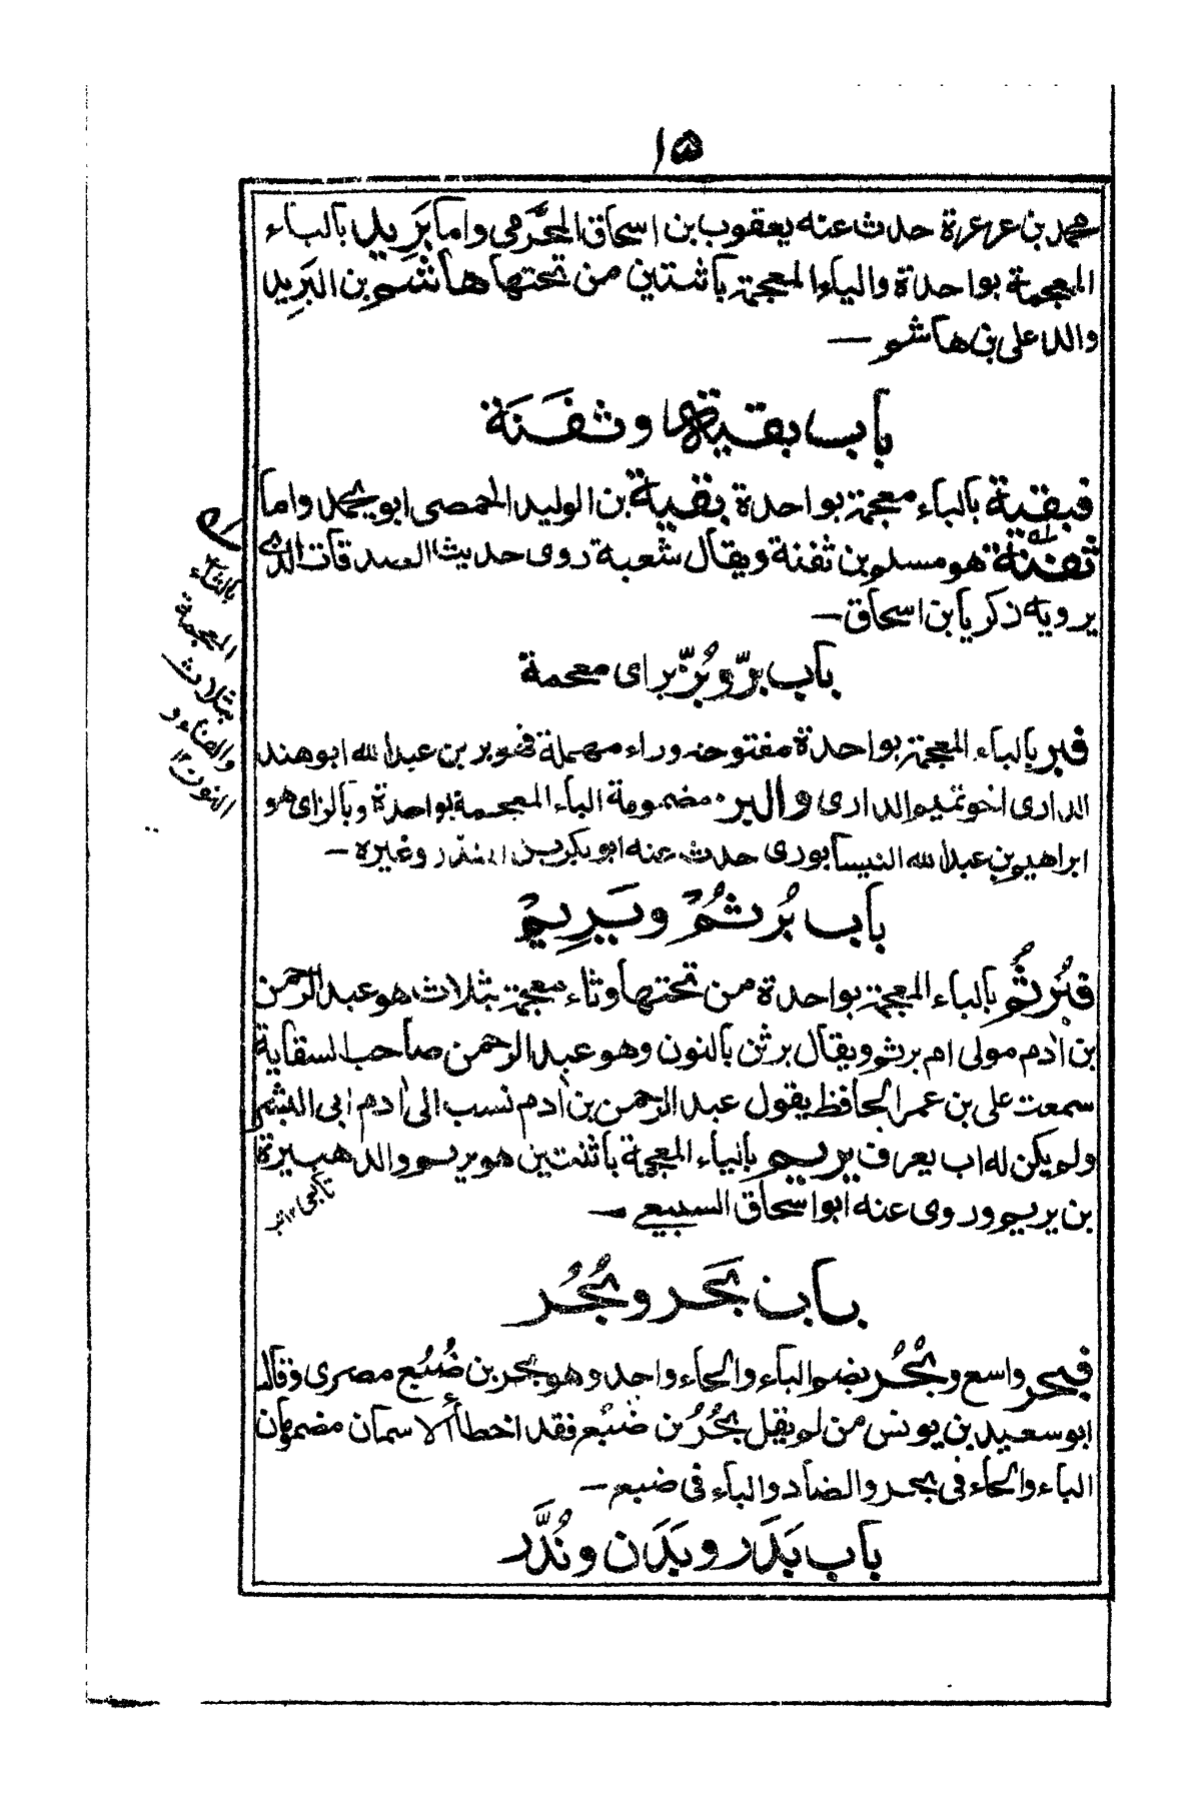 ١٥
محمد بن عرعرة حدث عنه يعقوب بن اسحاق المخَرَّمى واما بَرِيد بالباء
المعجمة بواحدة والياء المعجمة باثنتين من تحتها هاشم بن البَرِيد
والد على بن هاشم —
باب بقية وثَفَنَة
فبقية بالباء معجمة بواحدة بقية بن الوليد الحمصى ابو يحمد واما
ثفنة هو مسلم بن ثفنة ويقال شعبة روى حديث الصدقات الذى
يرويه زكريا بن اسحاق —
باب برّ وبُزّ بزاى معجمة
فبر بالباء المعجمة بواحدة مفتوحة وراء مهملة فهو بر بن عبد الله ابو هند
الدارى اخو تميم الدارى والبز مضمومة الباء المعجمة بواحدة وبالزاى هو
ابراهيم بن عبد الله النيسابورى حدث عنه ابو بكر بن المنذر وغيره —
باب بُرثُم ويَرِيم
فبُرثُم بالباء المعجمة بواحدة من تحتها وثاء معجمة بثلاث هو عبد الرحمن
بن اٰدم مولى ام برثم ويقال برثن بالنون وهو عبد الرحمن صاحب السقاية
سمعت على بن عمر الحافظ يقول عبد الرحمن بن اٰدم نسب الى اٰدم ابى البشر
ولم يكن له اب يعرف يريم بالياء المعجمة باثنتين هو يريم والد هبيرة
بن يريم وروى عنه ابو اسحاق السبيعى —
باب بَحَر وبُحُر
فبحر واسع وبُحُر بضم الباء والحاء واحد وهو بحر بن ضُبُع مصرى وقال
ابو سعيد بن يونس من لم يقل بُحُرُ بن ضُبُع فقد اخطأ الاسمان مضمومان
الباء والحاء فى بحر والضاد والباء فى ضبع —
باب بَدَر وبَدَن ونُدَّر
بالثاء
المعجمة
بثلاث
والفاء و
النون ١٢
تابعى ١٢